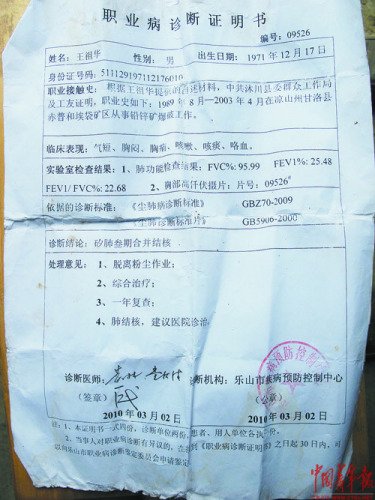 职业病诊断证明书
编号：09526
姓名：王祖华 性别：男 出生日期：1971年12月17日
身份证号码：511129197112176010
职业接触史：根据王祖华提供的自述材料，中共沐川县委群众工作局
及工友证明，职业史如下：1989年8月—2003年4月在凉山州甘洛县
赤普和埃袋矿区从事铅锌矿爆破工作。
临床表现：气短、胸闷、胸痛、咳嗽、咳痰、咯血。
实验室检查结果：1、肺功能检查结果：FVC%：95.99 FEV1%：25.48
FEV1/FVC%：22.68 2、胸部高仟伏摄片：片号：09526#
依据的诊断标准：《尘肺病诊断标准》 GBZ70-2009
《尘肺病诊断标准片》 GB5906-2000
诊断结论：矽肺叁期合并结核
处理意见：1、脱离粉尘作业；
2、综合治疗；
3、一年复查；
4、肺结核，建议医院诊治
诊断医师： 诊断机构：乐山市疾病预防控制中心
（签章） （签章）
2010年03月02日 2010年03月02日
注：1、本证明书一式四份，诊断单位两份，患者、用人单位各执一份。
2、当事人对职业病诊断有异议的，在接到《职业病诊断证明书》之日起30日内，可
以向乐山市职业病诊断鉴定委员会申请鉴定
疾病预防控制
中国青年报